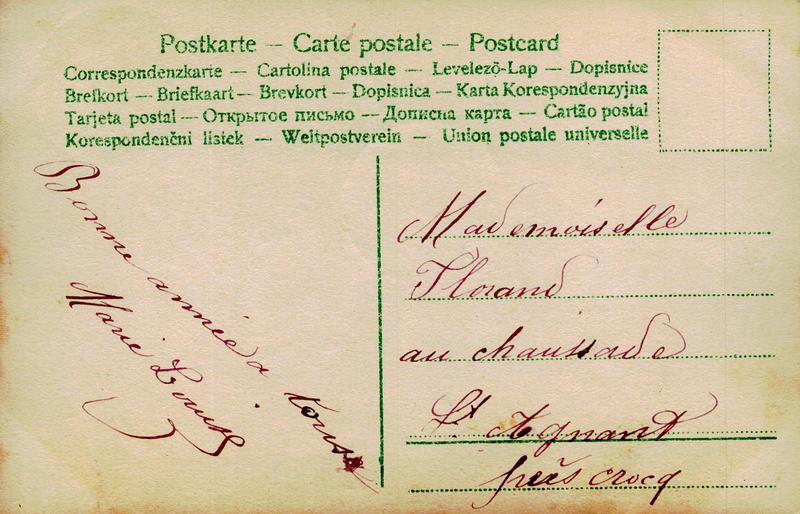 Postkarte – Carte postale – Postcard
Correspondenzkarte – Cartolina postale – Levelező-Lap – Dopisnice
Brefkort – Briefkaart – Brevkort – Dopisnica – Karta Korespondenzyjna
Tarjeta postal – Открытое письмо – Дописна карта – Cartão postal
Korespondenčni listek – Weltpostverein – Union postale universelle
Bonne année a tous
Marie Louise
Mademoiselle
Florand
au chaussade
St Agnant
près crocq